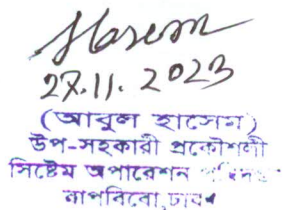 Hasem
27.11.2023
(আবুল হাসেম)
উপ-সহকারী প্রকৌশলী
সিষ্টেম অপারেশন
বাপবিবো, ঢাকা